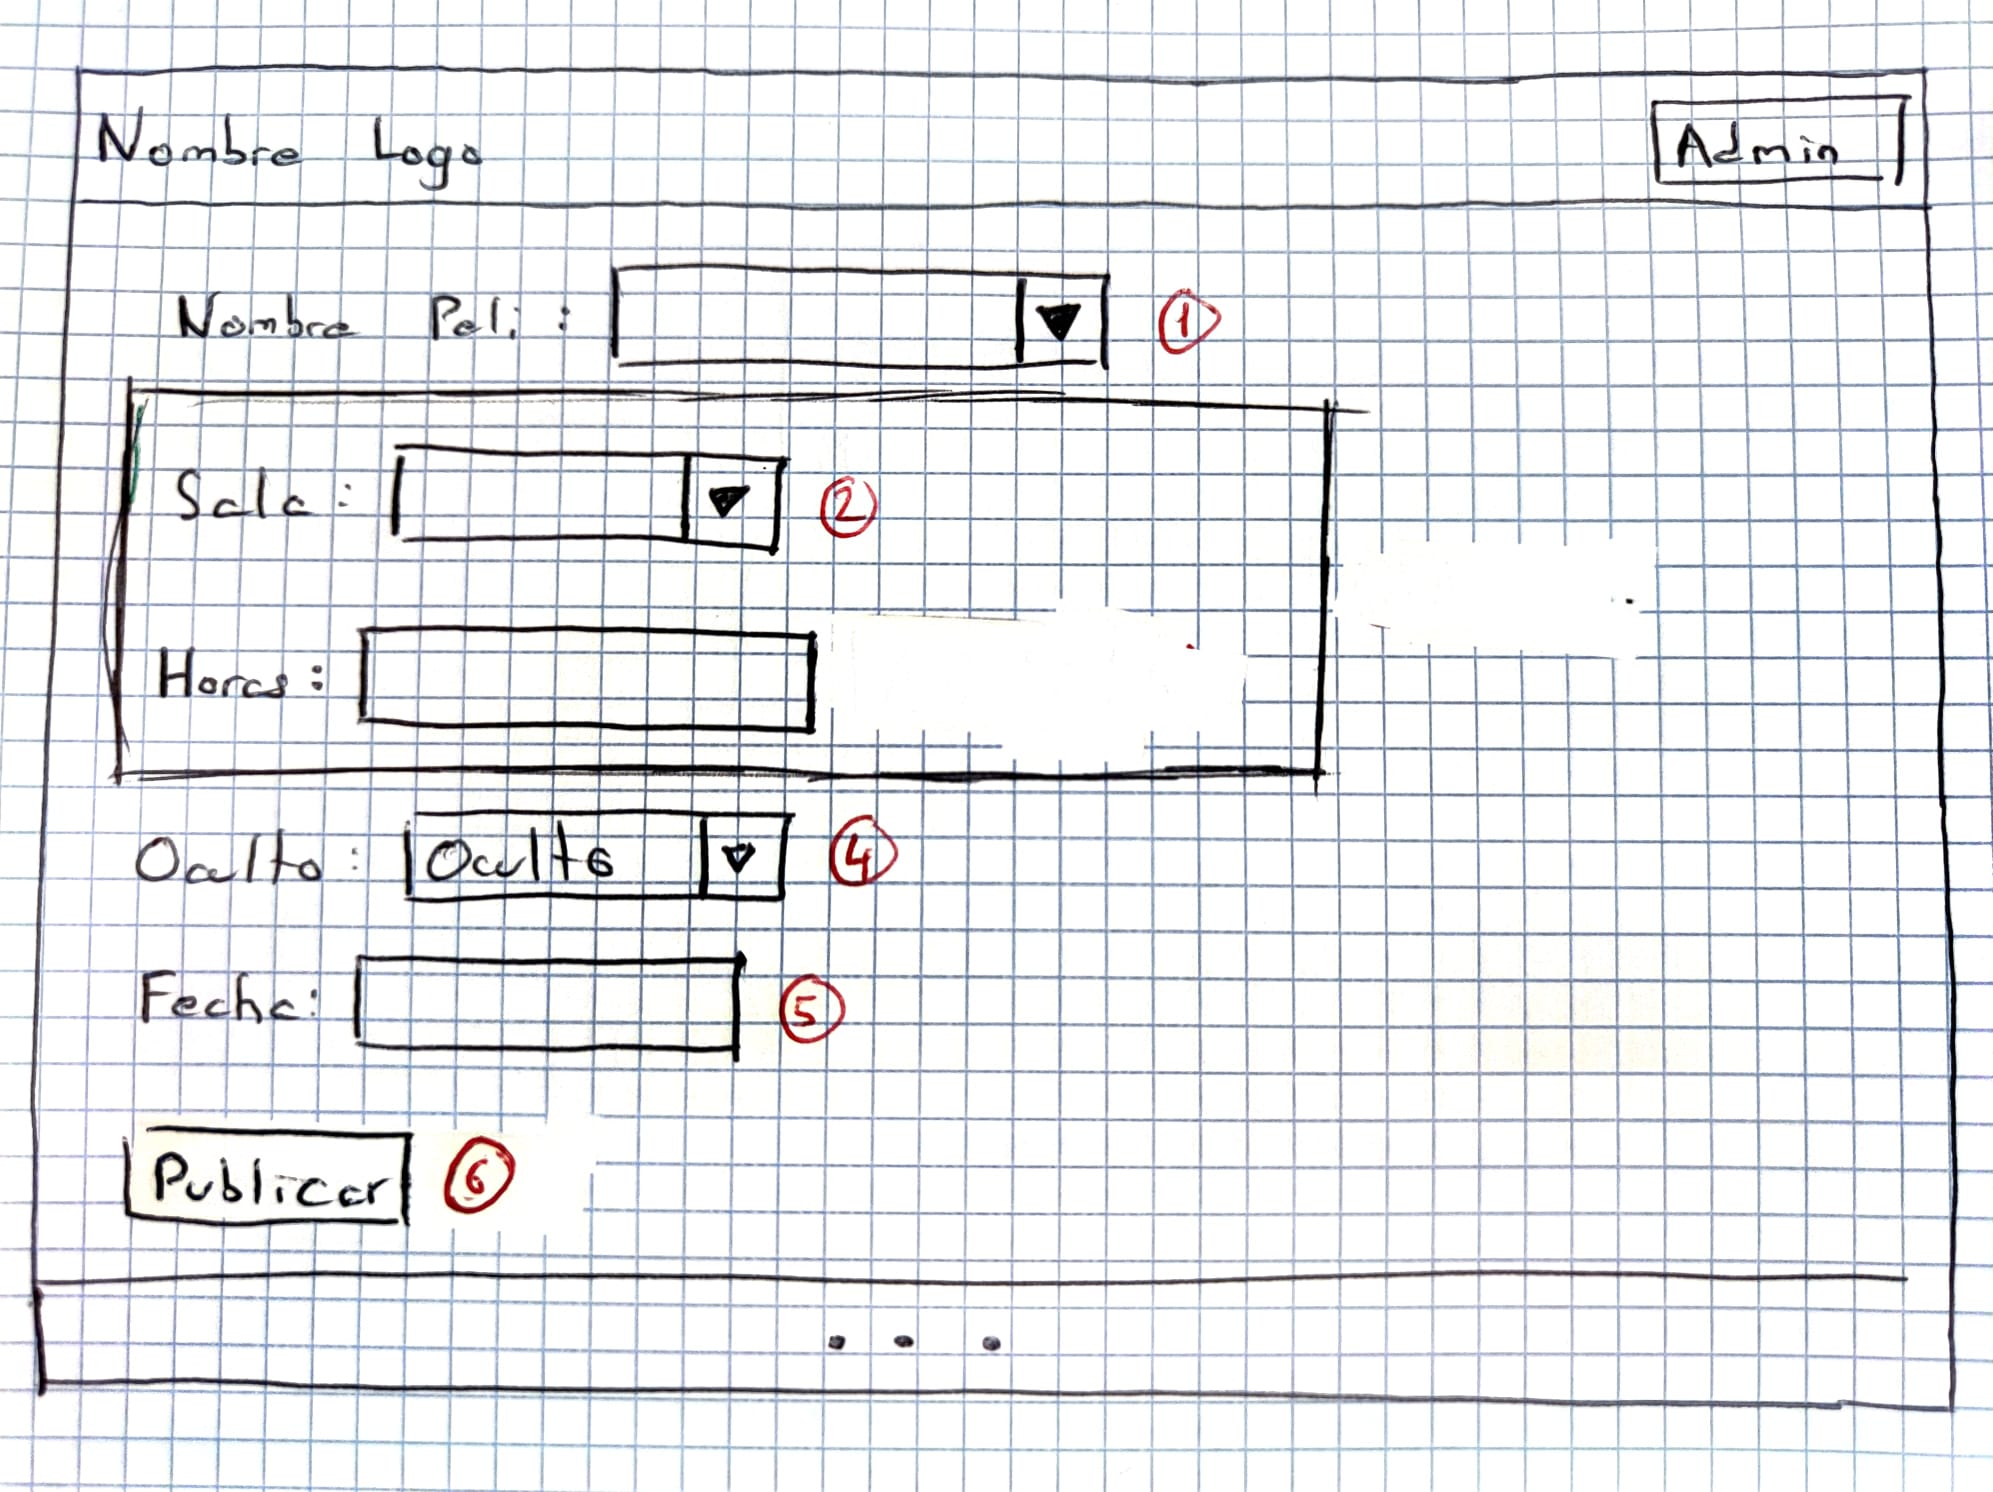 Nombre Logo Admin
Nombre Peli: 1
Sala: 2
Horas:
Oculto: Oculto 4
Fecha: 5
Publicar 6
...